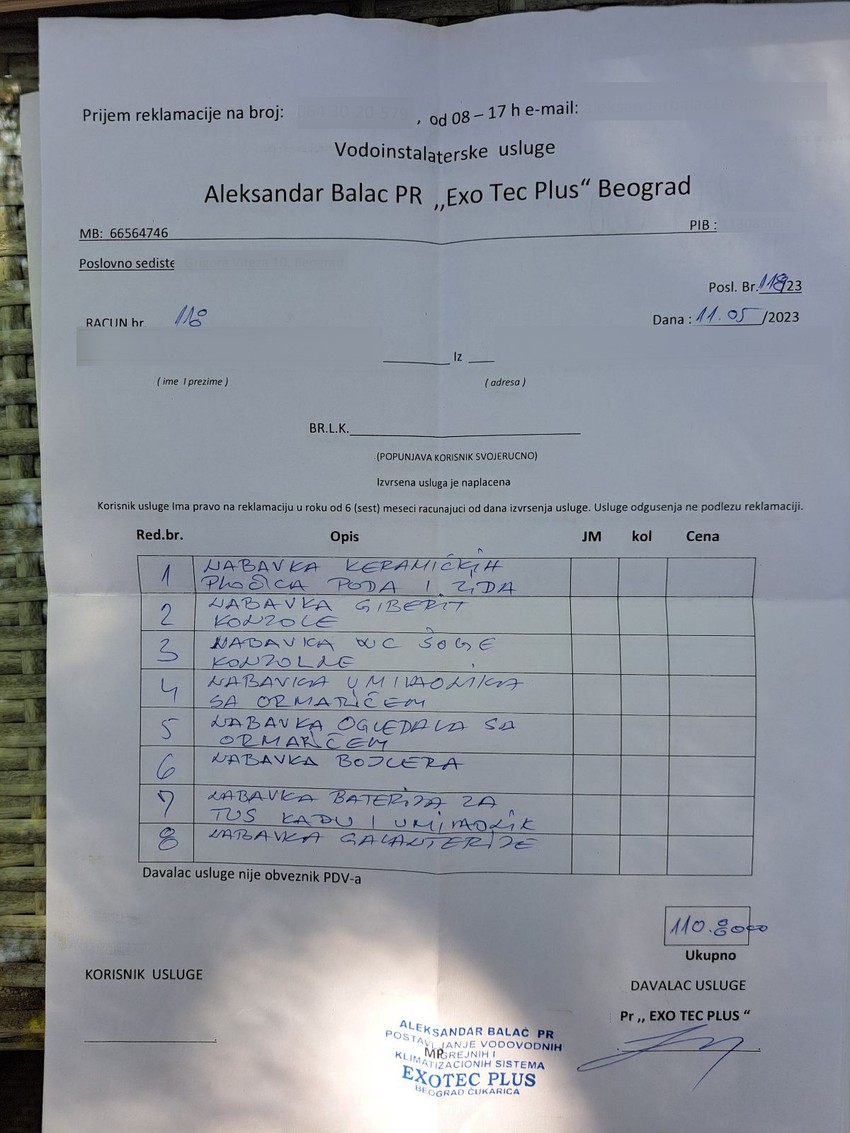 Prijem reklamacije na broj: , od 08 – 17 h e-mail:
Vodoinstalaterske usluge
Aleksandar Balac PR „Exo Tec Plus“ Beograd
MB: 66564746 PIB :
Poslovno sediste
Posl. Br. 118/23
RACUN br 118
Dana : 11.05/2023
Iz
( ime I prezime ) ( adresa )
BR.L.K.
(POPUNJAVA KORISNIK SVOJERUCNO)
Izvrsena usluga je naplacena
Korisnik usluge Ima pravo na reklamaciju u roku od 6 (sest) meseci racunajuci od dana izvrsenja usluge. Usluge odgusenja ne podlezu reklamaciji.
Red.br. Opis JM kol Cena
1 NABAVKA KERAMIČKIH
PLOČICA PODA I ZIDA
2 NABAVKA GIBERIT
KONZOLE
3 NABAVKA WC ŠOLJE
KONZOLNE
4 NABAVKA UMIVAONIKA
SA ORMARIČEM
5 NABAVKA OGLEDALA SA
ORMARIČEM
6 NABAVKA BOJLERA
7 NABAVKA BATERIJA ZA
TUS KADU I UMIVAONIK
8 NABAVKA GALANTERIJE
Davalac usluge nije obveznik PDV-a
Ukupno
KORISNIK USLUGE
DAVALAC USLUGE
Pr „ EXO TEC PLUS “
ALEKSANDAR BALAĆ PR
POSTAVLJANJE VODOVODNIH
MP GREJNIH I
KLIMATIZACIONIH SISTEMA
EXOTEC PLUS
BEOGRAD ČUKARICA